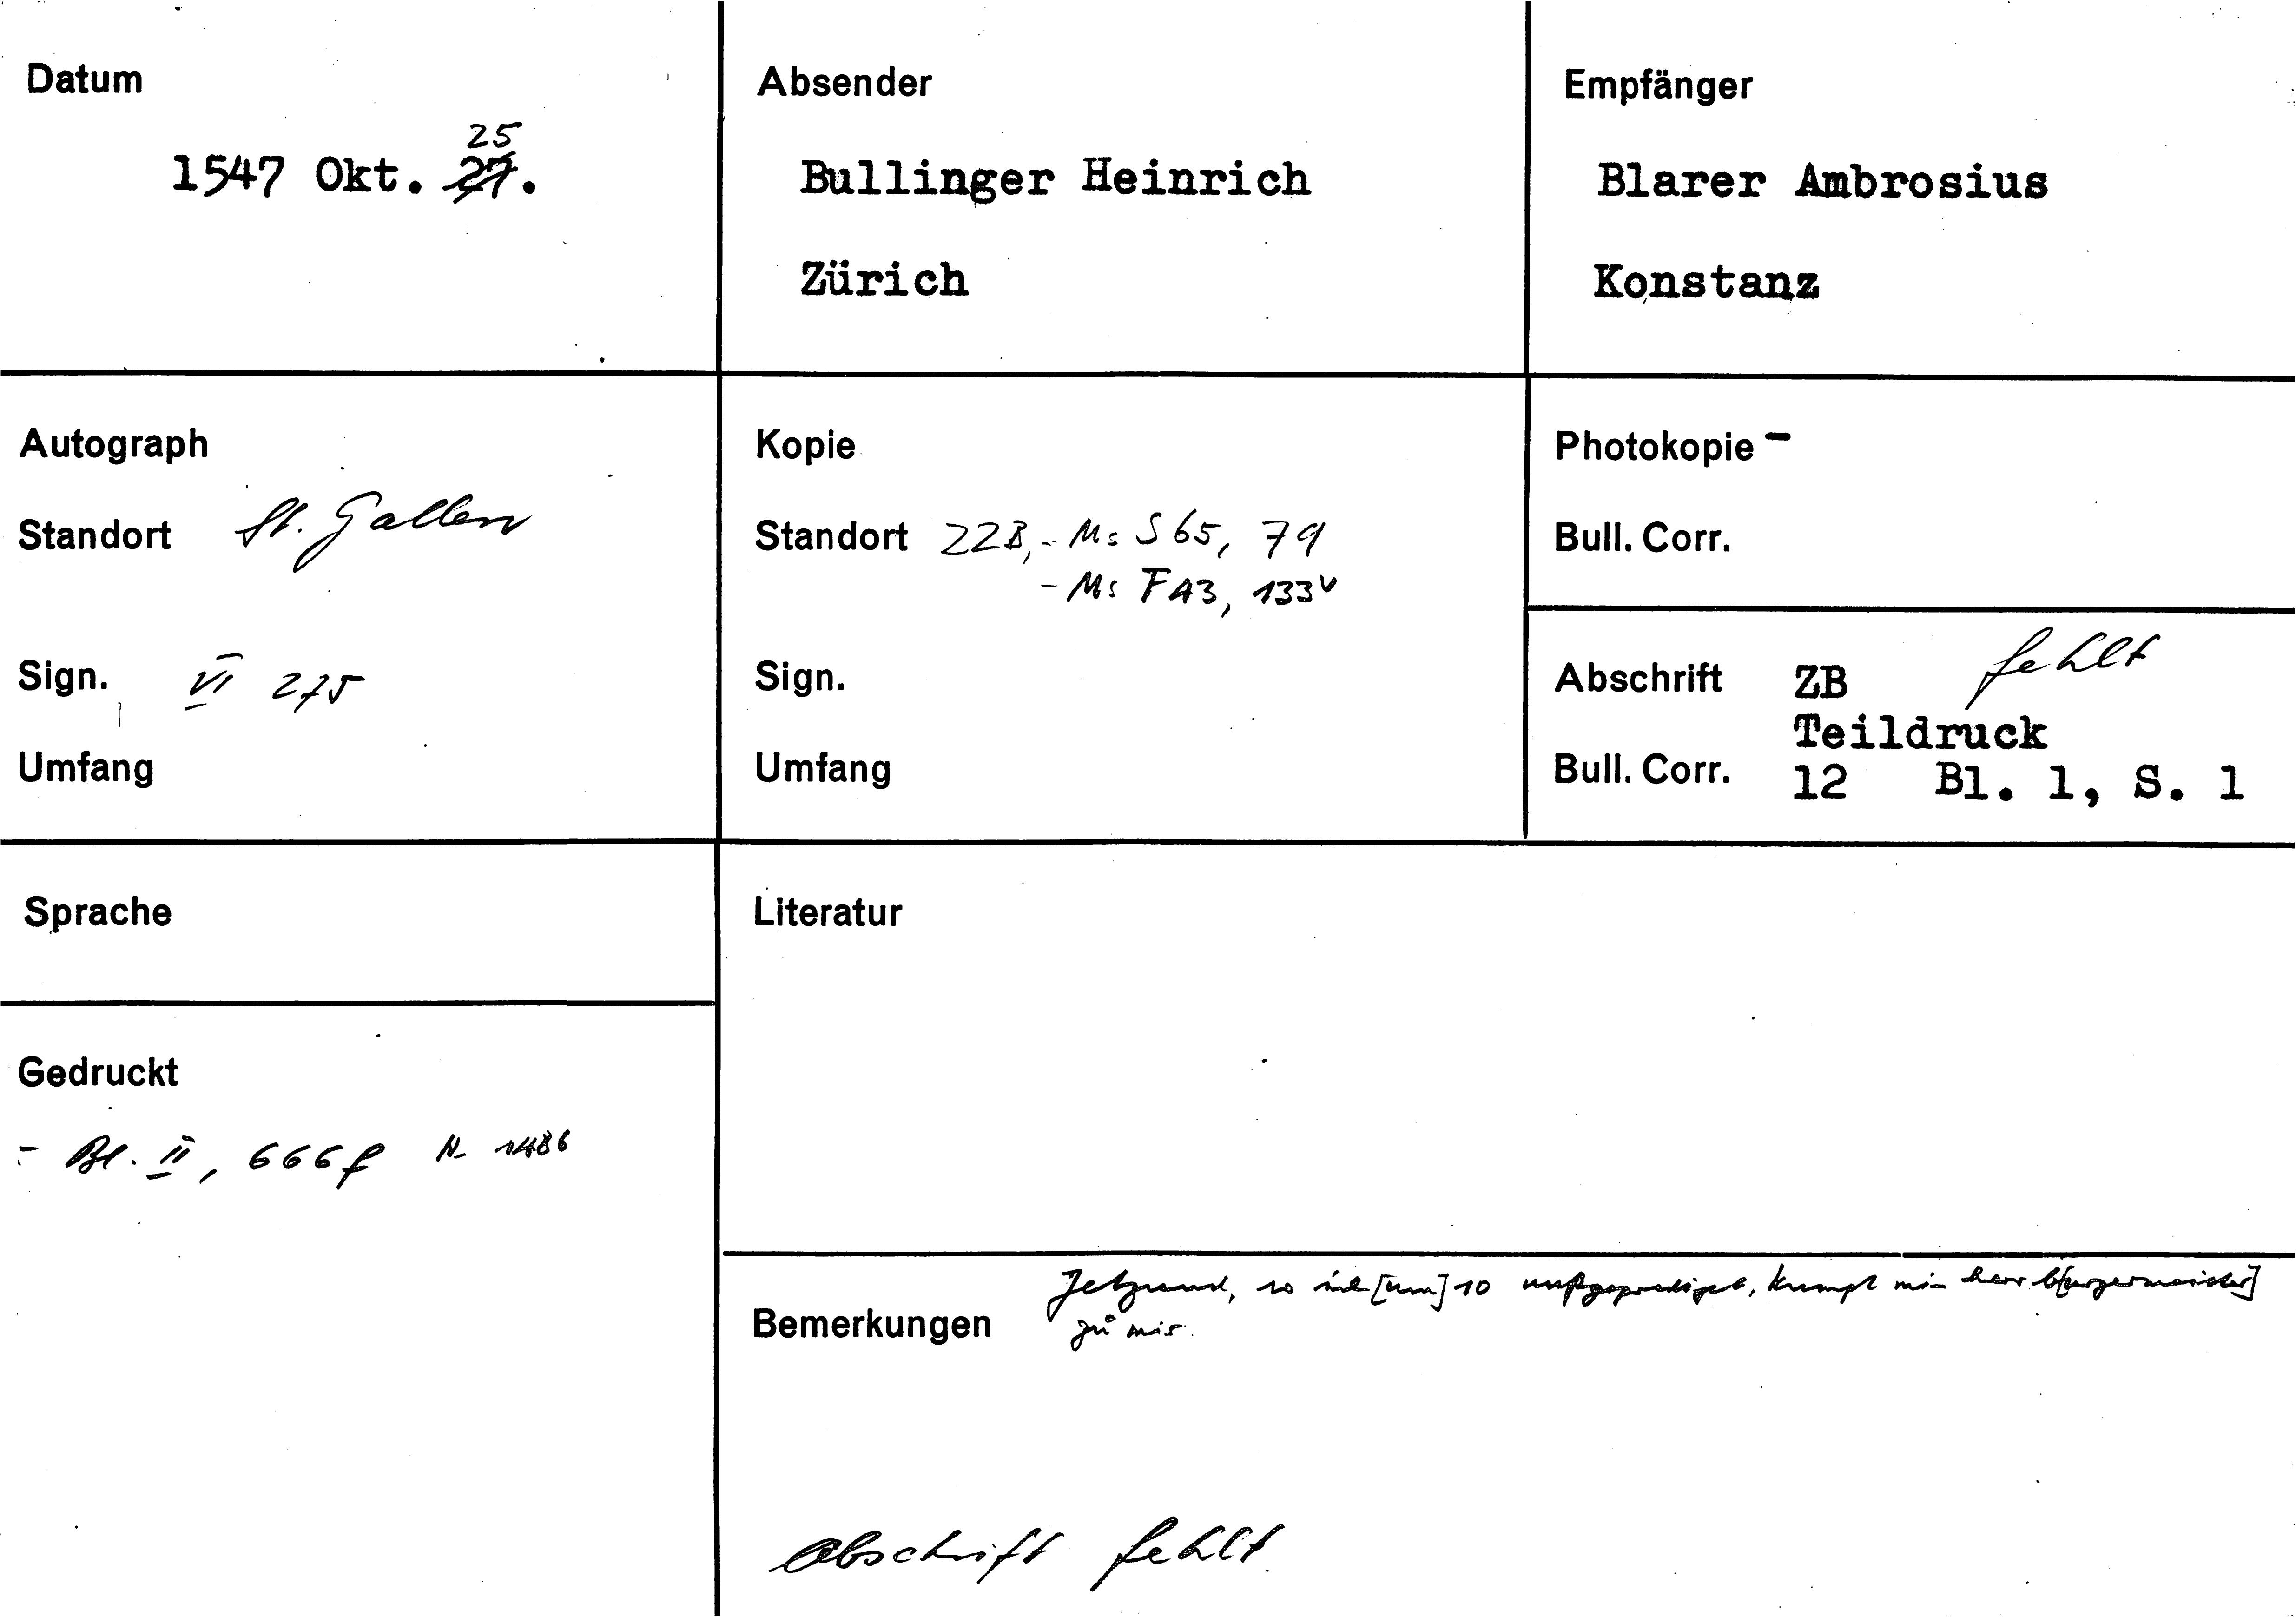 Datum
25
1547 Okt. 27.
Absender
Bullinger Heinrich
Zürich
Empfänger
Blarer Ambrosius
Konstanz
Autograph
Standort St. Gallen
Sign. VI 275
Umfang
Kopie
Standort ZZB, - Ms S 65, 79
- Ms F 43, 133v
Sign.
Umfang
Photokopie -
Bull. Corr.
Abschrift ZB fehlt
Teildruck
Bull. Corr. 12 Bl. 1, S. 1
Sprache
Gedruckt
- Bl. II, 666f N. 1486
Literatur
Bemerkungen
Jetzund, so [um] 10 ußgeprediget, kumpt min herr b[urgermeister]
zů mir.
Abschrift fehlt.